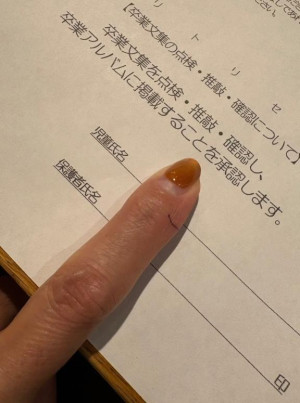 リトリセ
【卒業文集の点検・推敲・確認について】
卒業文集を点検・推敲・確認し、
卒業アルバムに掲載することを承認します。
児童氏名
保護者氏名
印